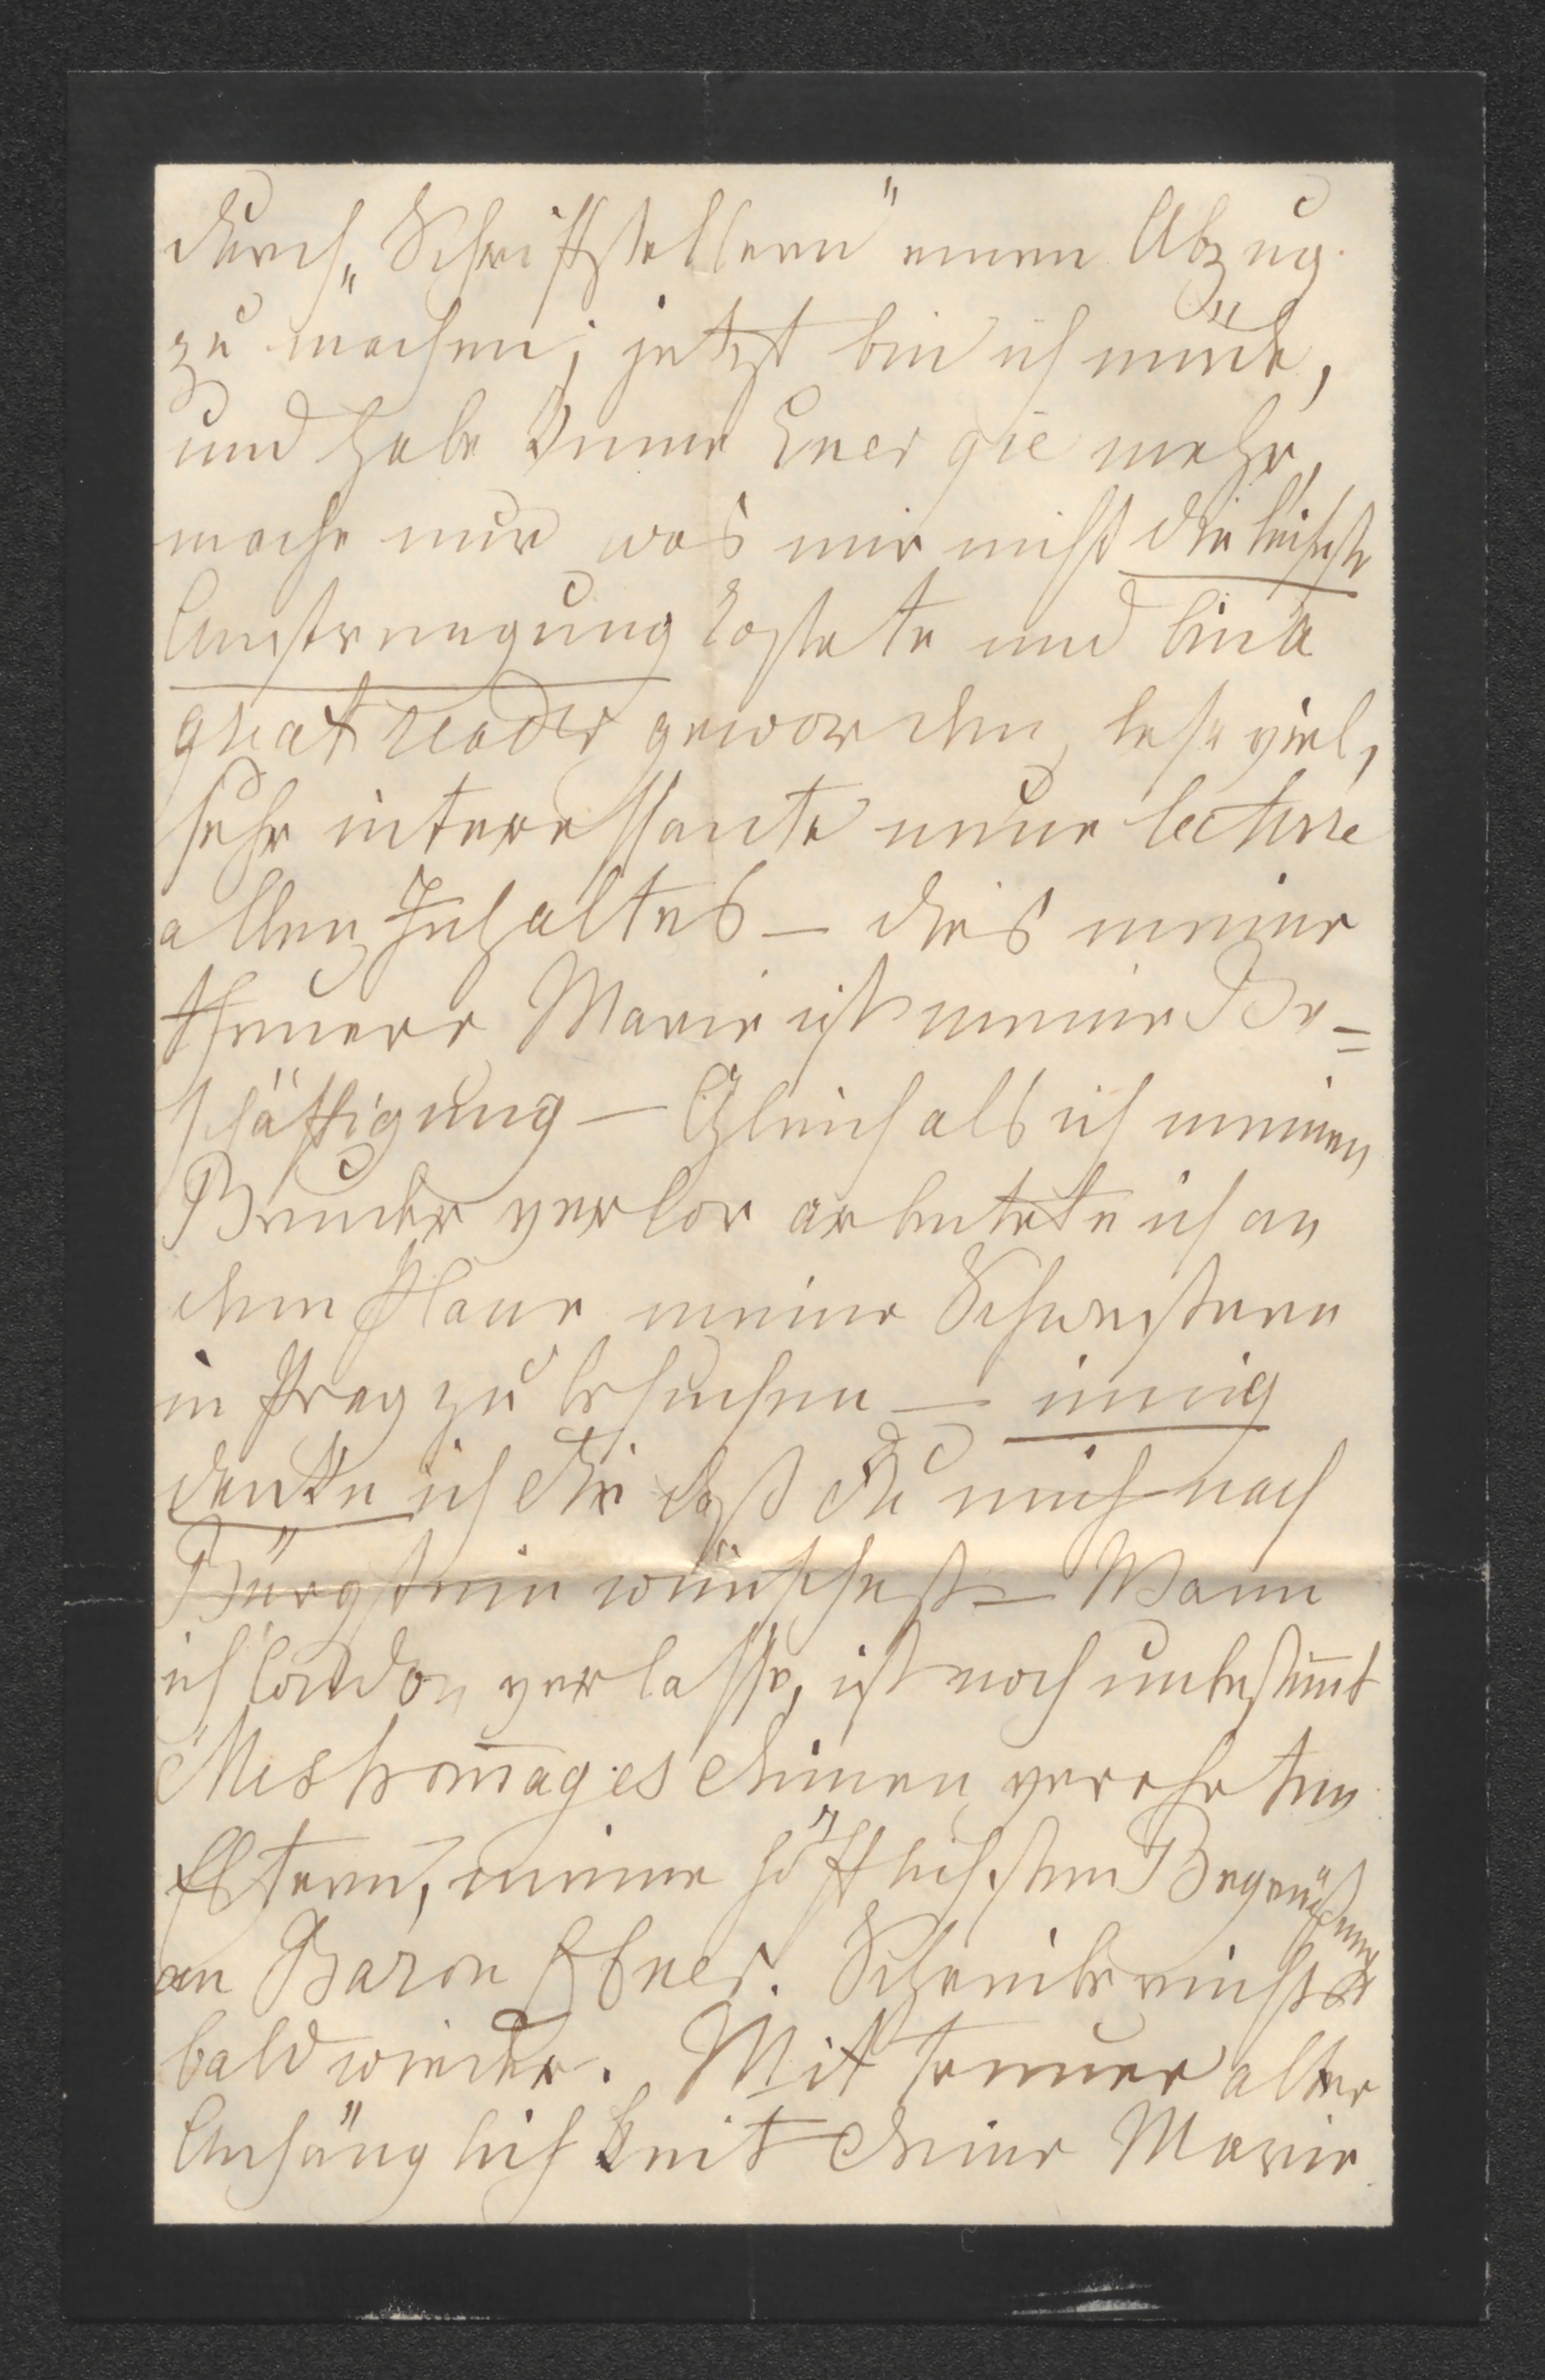 durch „Schriftstellern" einen Abzug
zu machen; jetzt bin ich müde,
und habe keine Energie mehr,
mache nur was mir nicht die leichste
Anstrengung kostete und bin a
great reader geworden, lese viel,
sehr interessante neue lecture
allen Inhaltes – dies meine
theuere Marie ist meine Be=
schäftigung – Gleich als ich meinen
Bruder verlor arbeitete ich an
dem Plane meine Schwestern
in Prag zu besuchen – innig
danke ich Dir daß Du mich nach
Bürgstein wünschest – Wann
ich London verlasse, ist noch unbestim̅t
Mes hom̅ages Deinen verehrten
Eltern, meine höfflichsten Begrüßungen
an Baron Ebner. Schreibe
bald wieder. Mit treuer alter
Anhänglichkeit Deine Marie